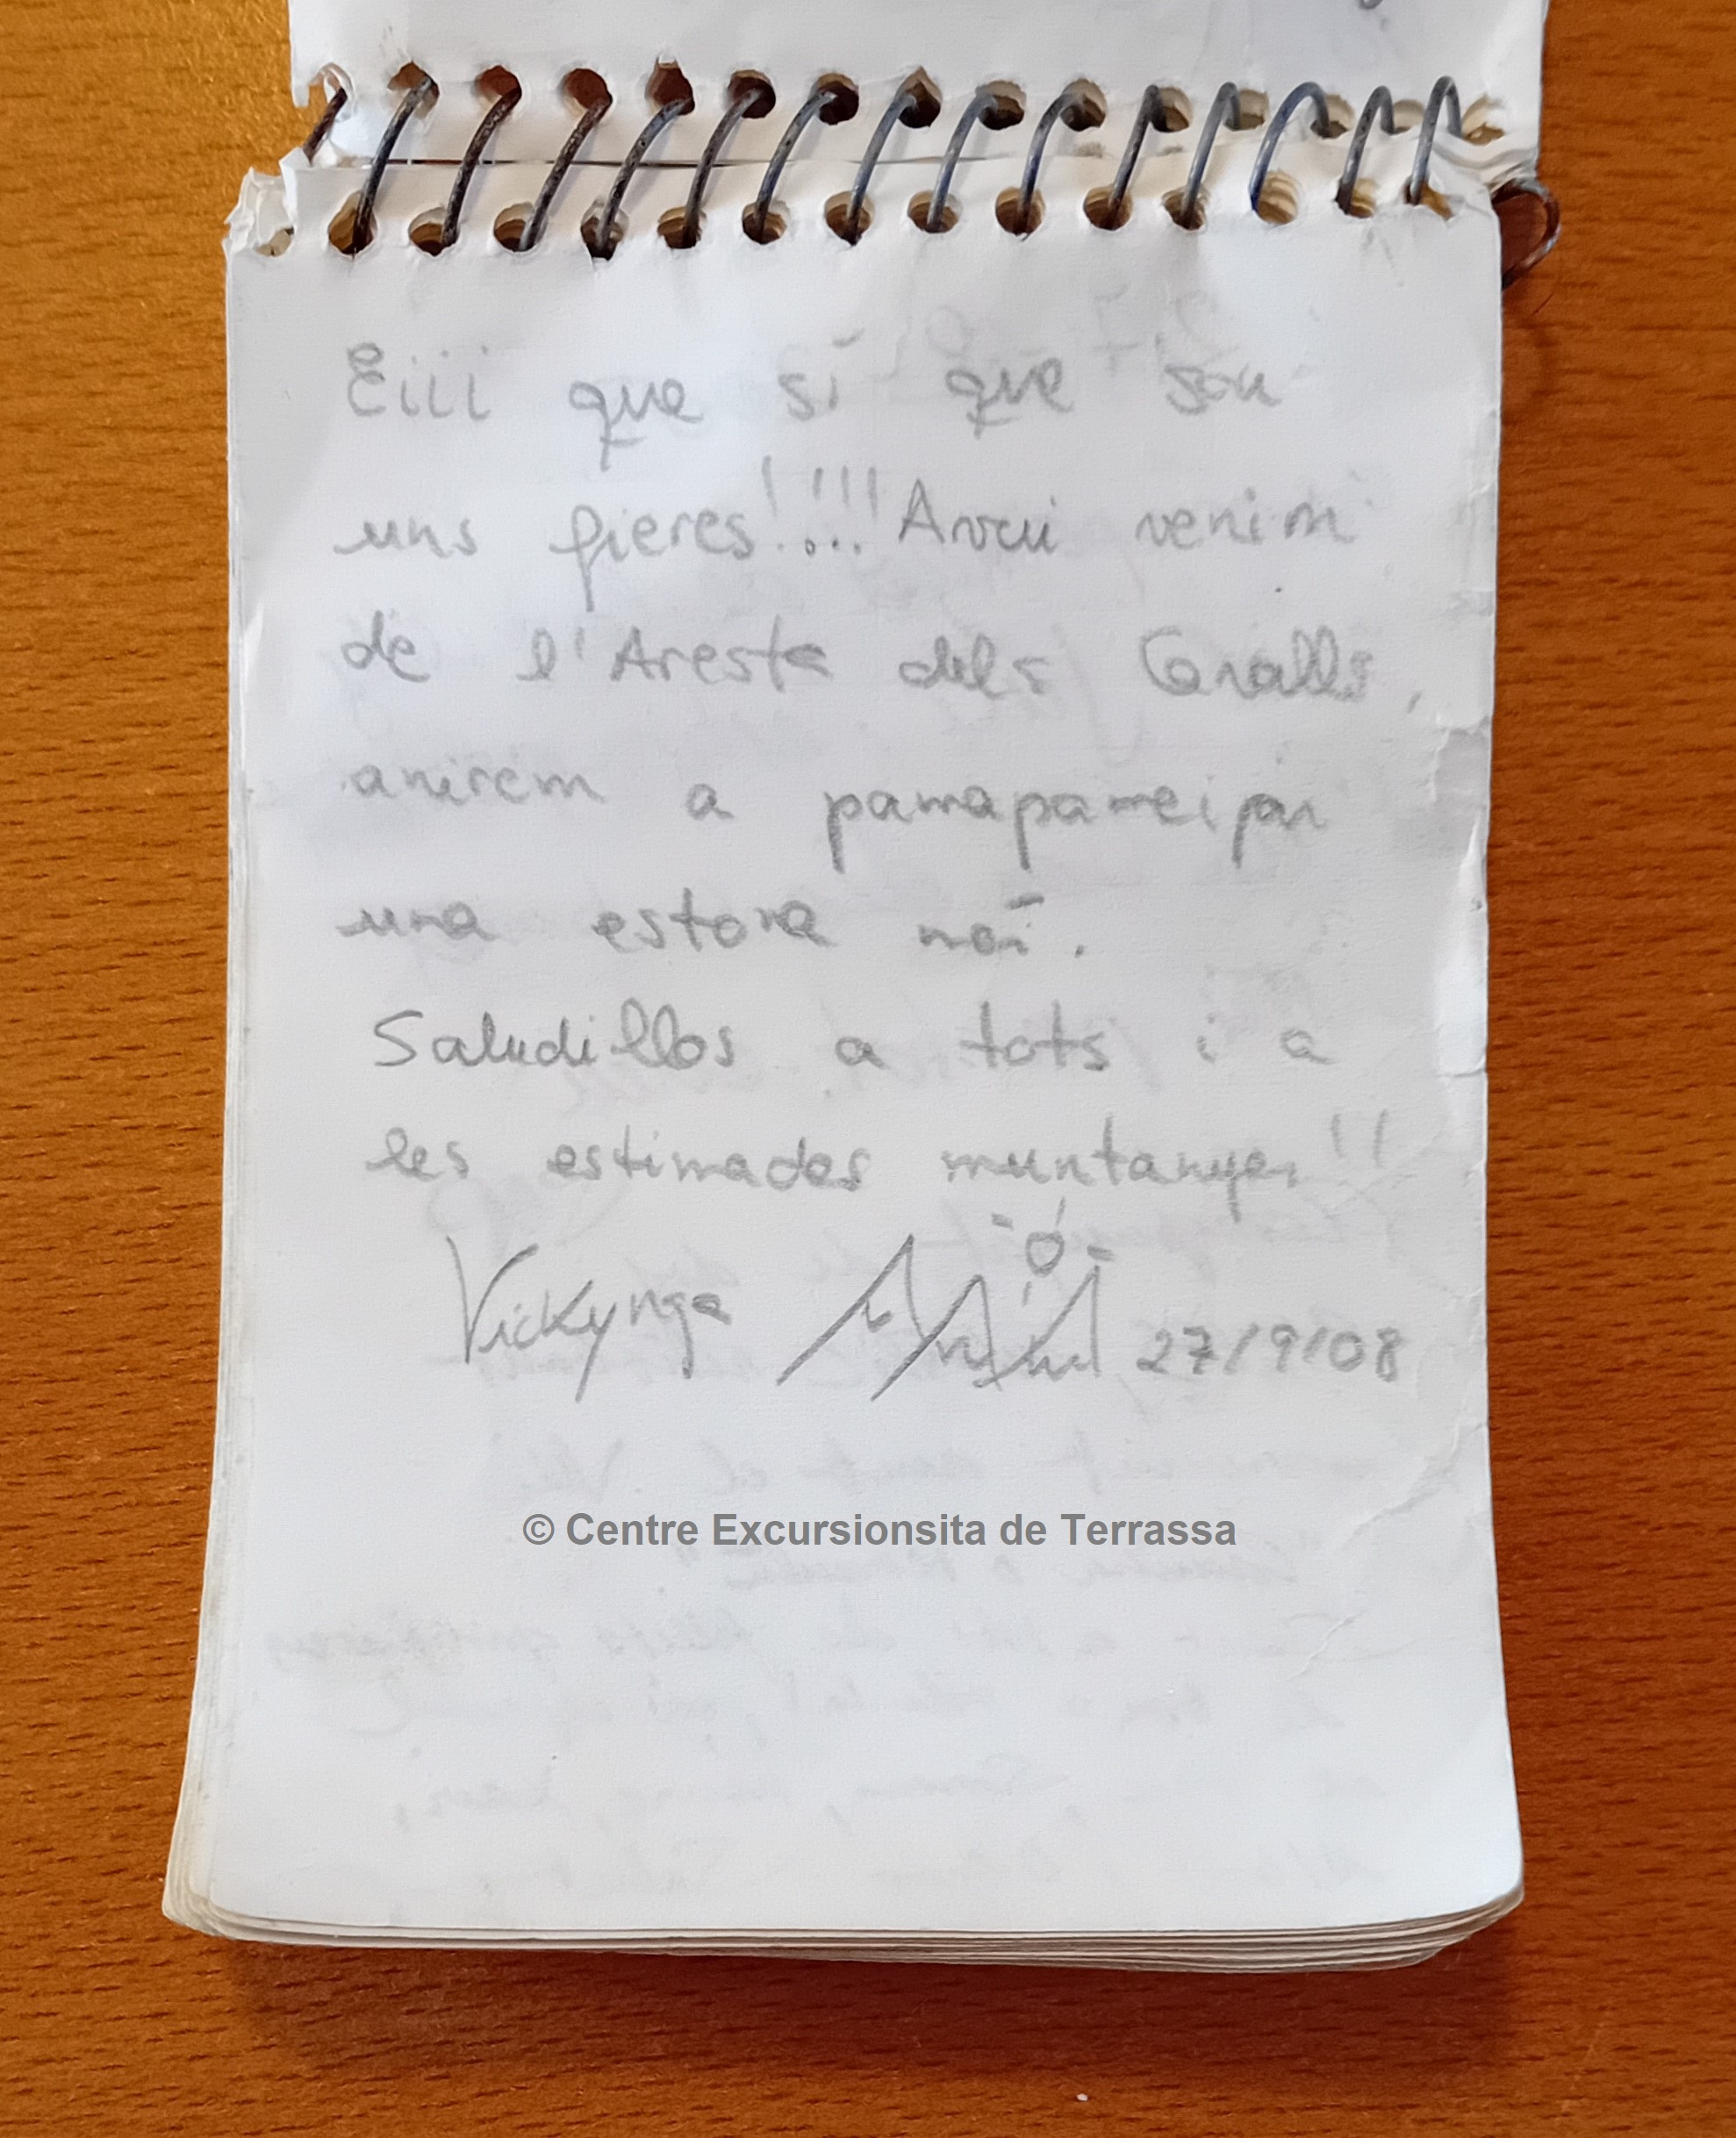 Eiii que sí que sou
uns fieres!!!!! Avui venim
de l'Aresta dels Cavalls,
anirem a
una estona més.
Saludillos a tots i a
les estimades muntanyes!!
Vickynga 27/9/08
© Centre Excursionsita de Terrassa